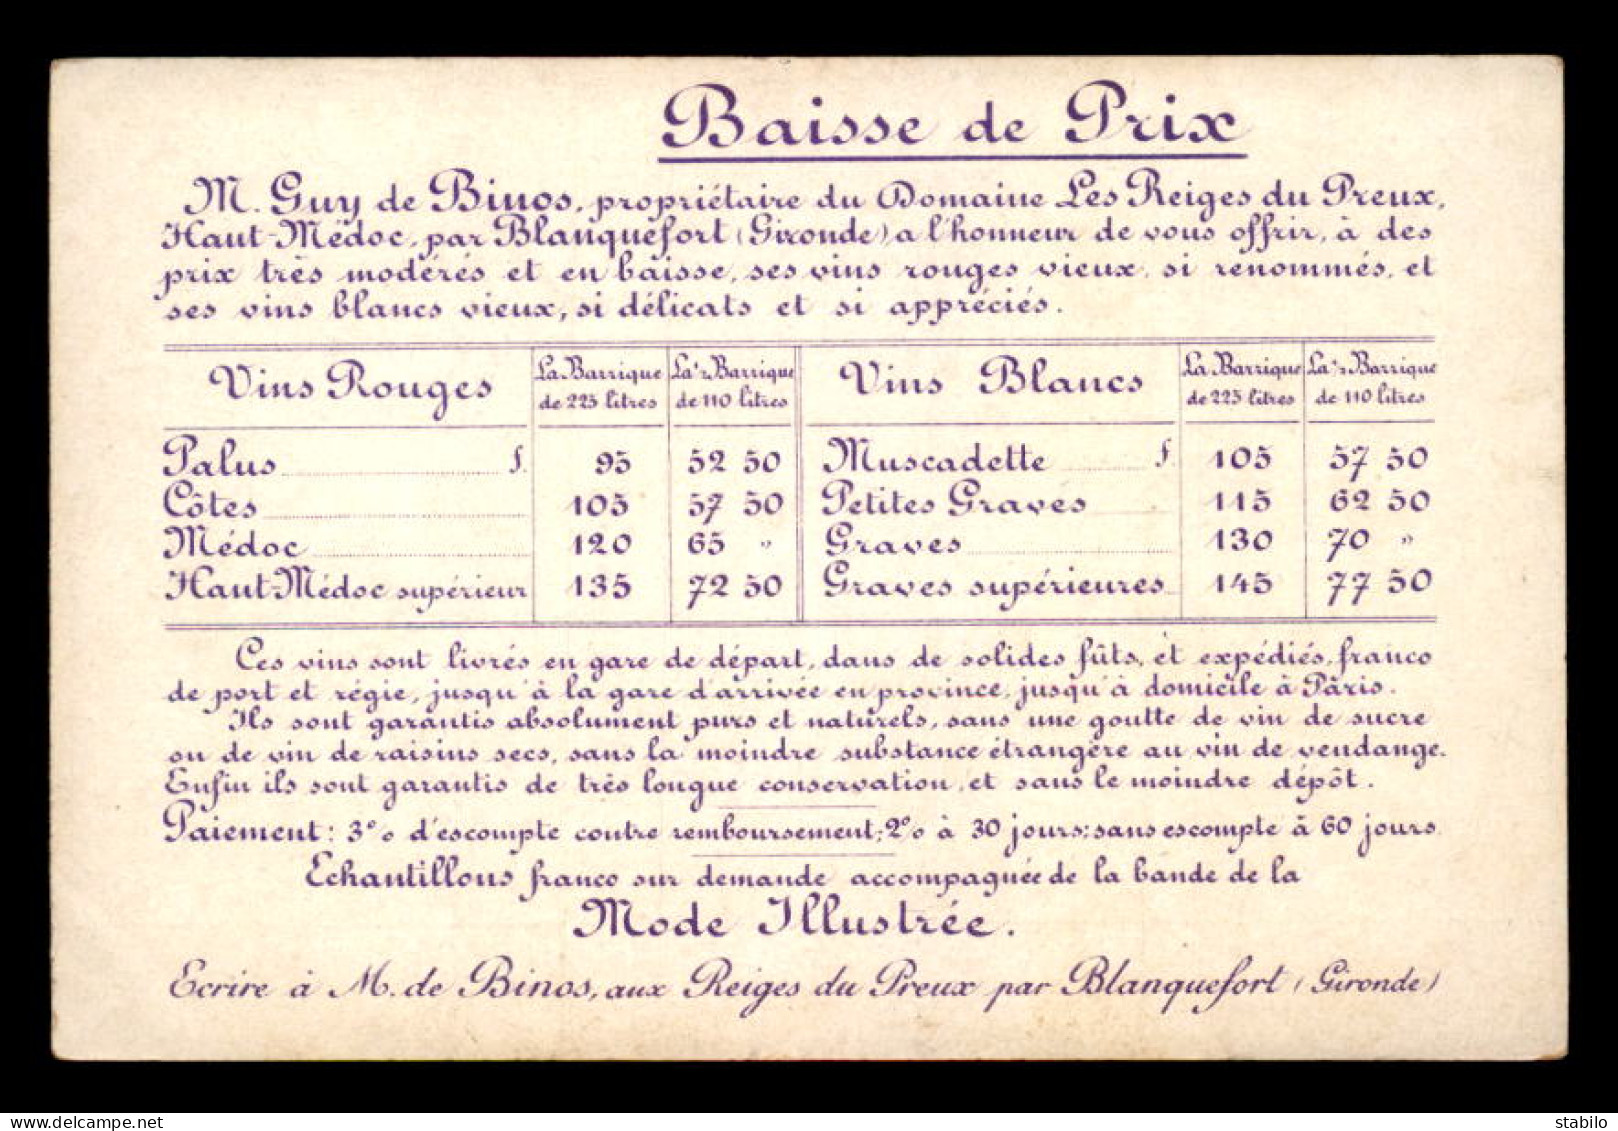 Baisse de Prix
M. Guy de Binos, propriétaire du Domaine Les Reiges du Preux,
Haut-Médoc, par Blanquefort (Gironde), a l'honneur de vous offrir, à des
prix très modérés et en baisse, ses vins rouges vieux, si renommés, et
ses vins blancs vieux, si délicats et si appréciés.
Vins Rouges La Barrique de 225 litres La 1/2 Barrique de 110 litres Vins Blancs La Barrique de 225 litres La 1/2 Barrique de 110 litres
Palus f. 95 52 50 Muscadette f. 105 57 50
Côtes 105 57 50 Petites Graves 115 62 50
Médoc 120 65 " Graves 130 70 "
Haut-Médoc supérieur 135 72 50 Graves supérieures 145 77 50
Ces vins sont livrés en gare de départ, dans de solides fûts, et expédiés, franco
de port et régie, jusqu'à la gare d'arrivée en province, jusqu'à domicile à Paris.
Ils sont garantis absolument purs et naturels, sans une goutte de vin de sucre
ou de vin de raisins secs, sans la moindre substance étrangère au vin de vendange.
Enfin ils sont garantis de très longue conservation, et sans le moindre dépôt.
Paiement: 3% d'escompte contre remboursement; 2% à 30 jours; sans escompte à 60 jours.
Echantillons franco sur demande accompagnée de la bande de la
Mode Illustrée.
Ecrire à M. de Binos, aux Reiges du Preux par Blanquefort (Gironde)
www.delcampe.net
stabilo